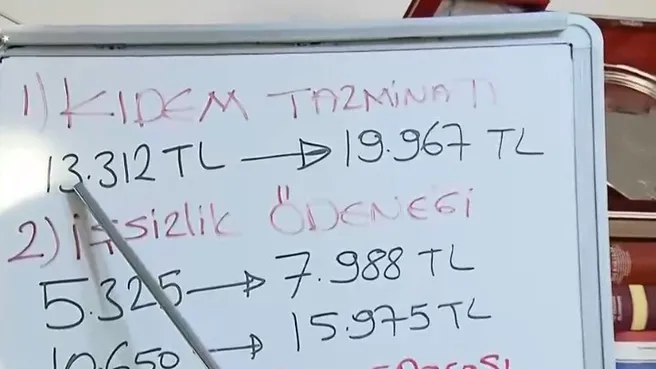 1) KIDEM TAZMİNATI
13.312 TL → 19.967 TL
2) İŞSİZLİK ÖDENEĞİ
5.325 → 7.988 TL
10.650 → 15.975 TL